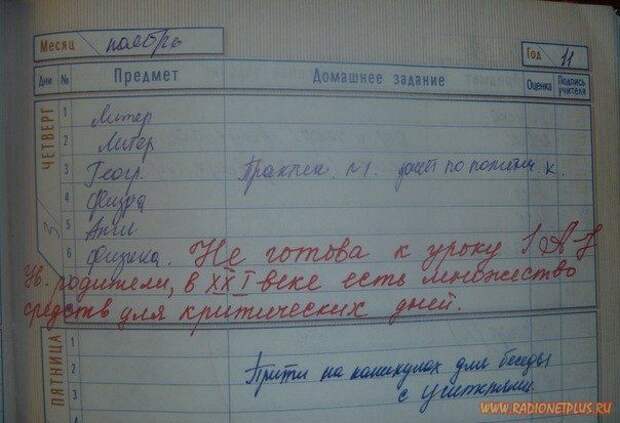 Месяц ноябрь Год 11
Дни № Предмет Домашнее задание Оценка Подпись учителя
ЧЕТВЕРГ 3
1 Литер
2 Литер
3 Геогр. Практич. №1. по
4 Физра
5 Англ
6 Физика. Не готова к уроку
Ув. родители, в XXI веке есть множество
средств для критических дней.
ПЯТНИЦА
1
2 Прийти на каникулах для беседы
3 с учителями.
WWW.RADIONETPLUS.RU